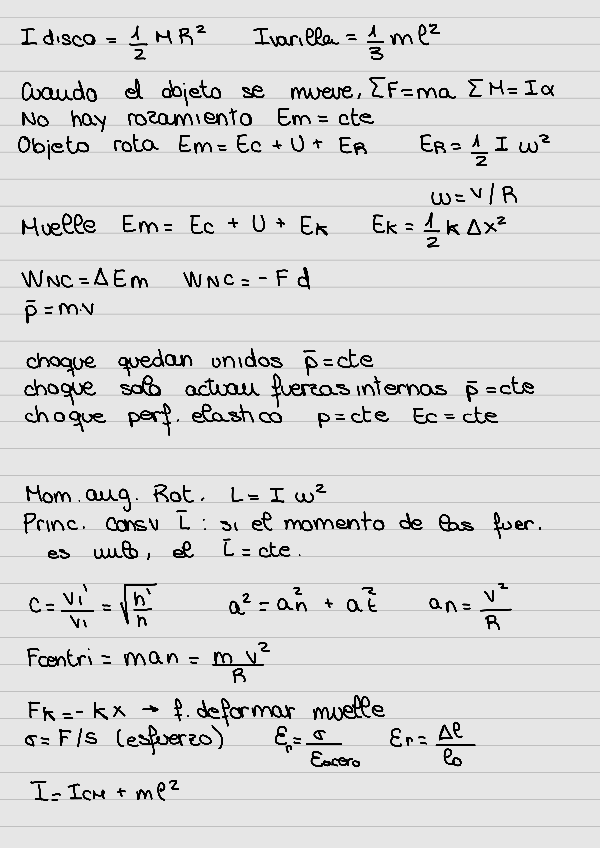 I disco = 1/2 M R²   I varilla = 1/3 m ℓ²
Cuando el objeto se mueve, ΣF=ma ΣM=Iα
No hay rozamiento Em = cte
Objeto rota Em = Ec + U + ER   ER = 1/2 I ω²
ω = v/R
Muelle Em = Ec + U + Ek   Ek = 1/2 k Δx²
WNC = ΔEm   WNC = - F d
p̄ = m·v
choque quedan unidos p̄ = cte
choque solo actuan fuerzas internas p̄ = cte
choque perf. elastico p = cte Ec = cte
Mom. ang. Rot. L = I ω²
Princ. consv L̄ : si el momento de las fuer.
es nulo, el L̄ = cte.
C = v₁'/v₁ = √(h'/h)   a² = an² + at²   an = v²/R
Fcentri = m an = m v²/R
Fk = - kx → f. deformar muelle
σ = F/S (esfuerzo)   Er = σ/Eacero   Er = Δℓ/ℓ₀
I = ICM + mℓ²